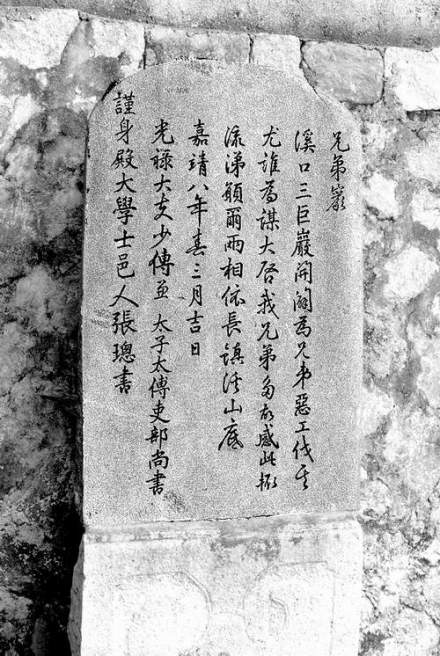 兄弟巖
溪口三巨巖開闢為兄弟惡工伐其
尤誰為謀大啓我兄弟多故感此輒
流涕願爾兩相依長鎮溪山底
嘉靖八年春三月吉日
光祿大夫少傅兼 太子太傅吏部尚書
謹身殿大學士邑人張璁書